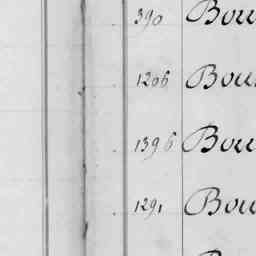 390 Bou
1206 Bou
1396 Bou
1291 Bou